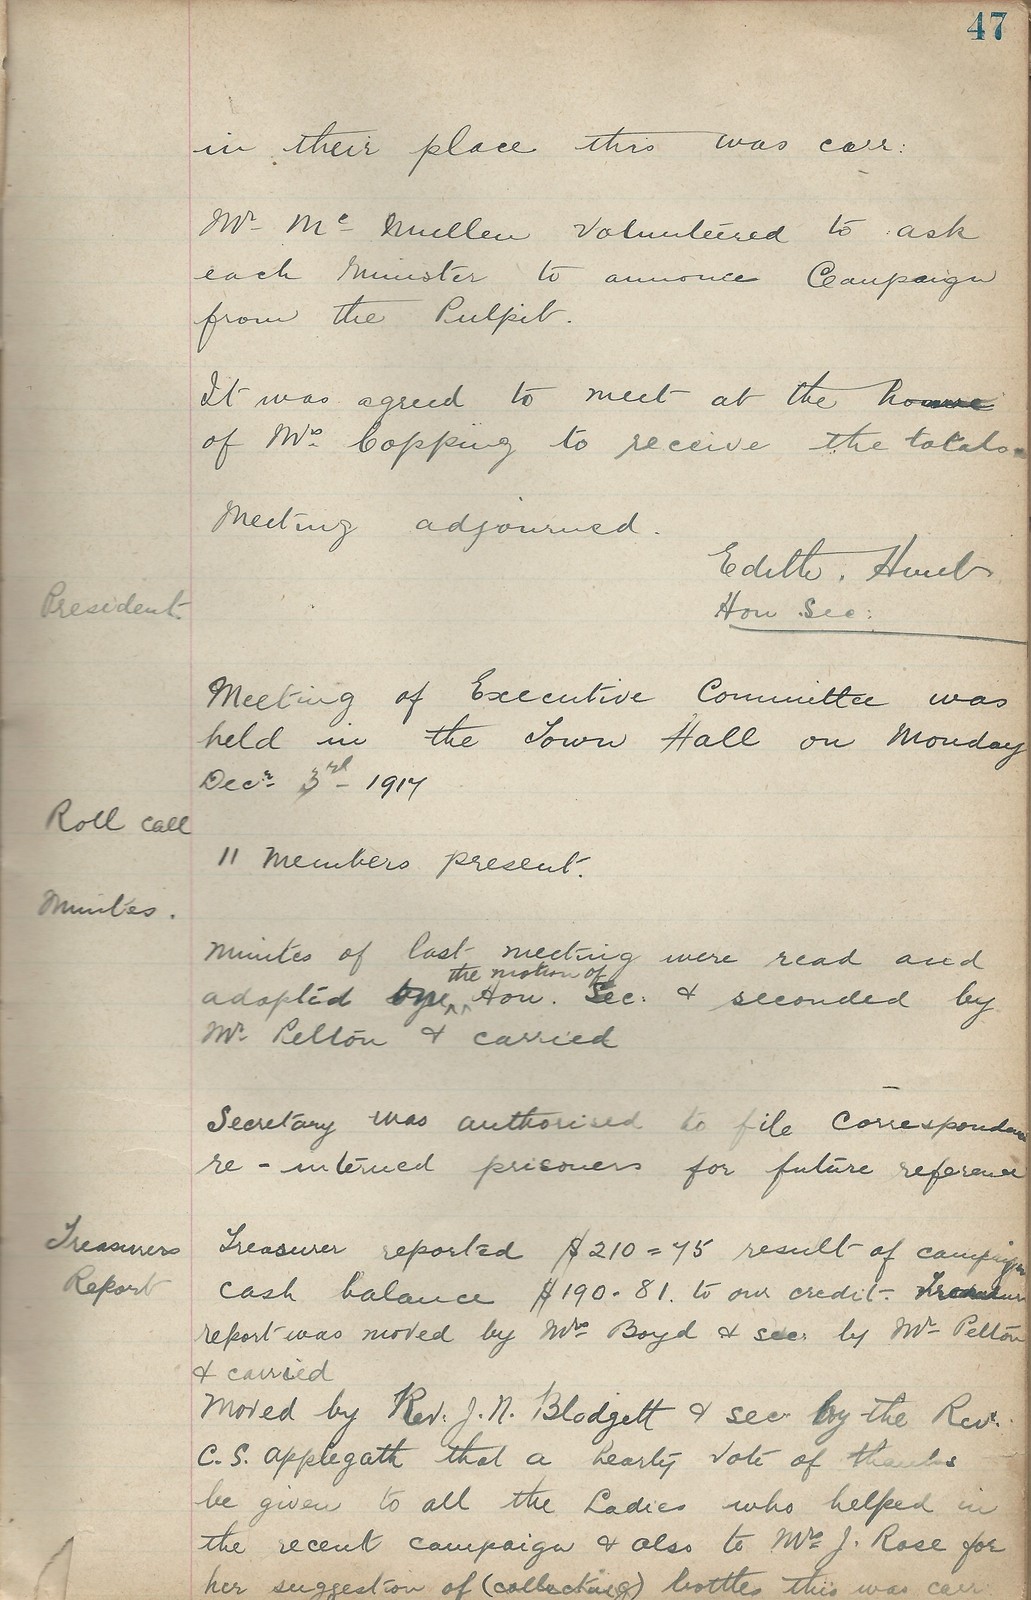 47
in their place this was carr:
Mr. Mc Mullen volunteered to ask
each Minister to annonce Campaign
from the Pulpit.
It was agreed to meet at the house
of Mrs. Copping to receive the totals.
Meeting adjourned.
Edith.
Hon Sec:
President.
Meeting of Executive Committee was
held in the Town Hall on Monday
Decr. 3rd - 1917
Roll call
11 Members present.
Minutes.
Minutes of last meeting were read and
the motion of
adopted Hon. Sec: & seconded by
Mr. Pelton & carried
Secretary was authorised to file Correspondence
re - interned prisoners for future reference
Treasurers
Report
Treasurer reported $210=75 result of campaign
cash balance $190.81. to our credit.
report was moved by Mrs Boyd & sec. by Mr. Pelton
& carried
Moved by Rev. J. N. Blodgett & sec by the Rev.
C. S. Applegath that a hearty vote of thanks
be given to all the Ladies who helped in
the recent campaign & also to Mrs J. Rose for
her suggestion of (collecting) bottles this was carr